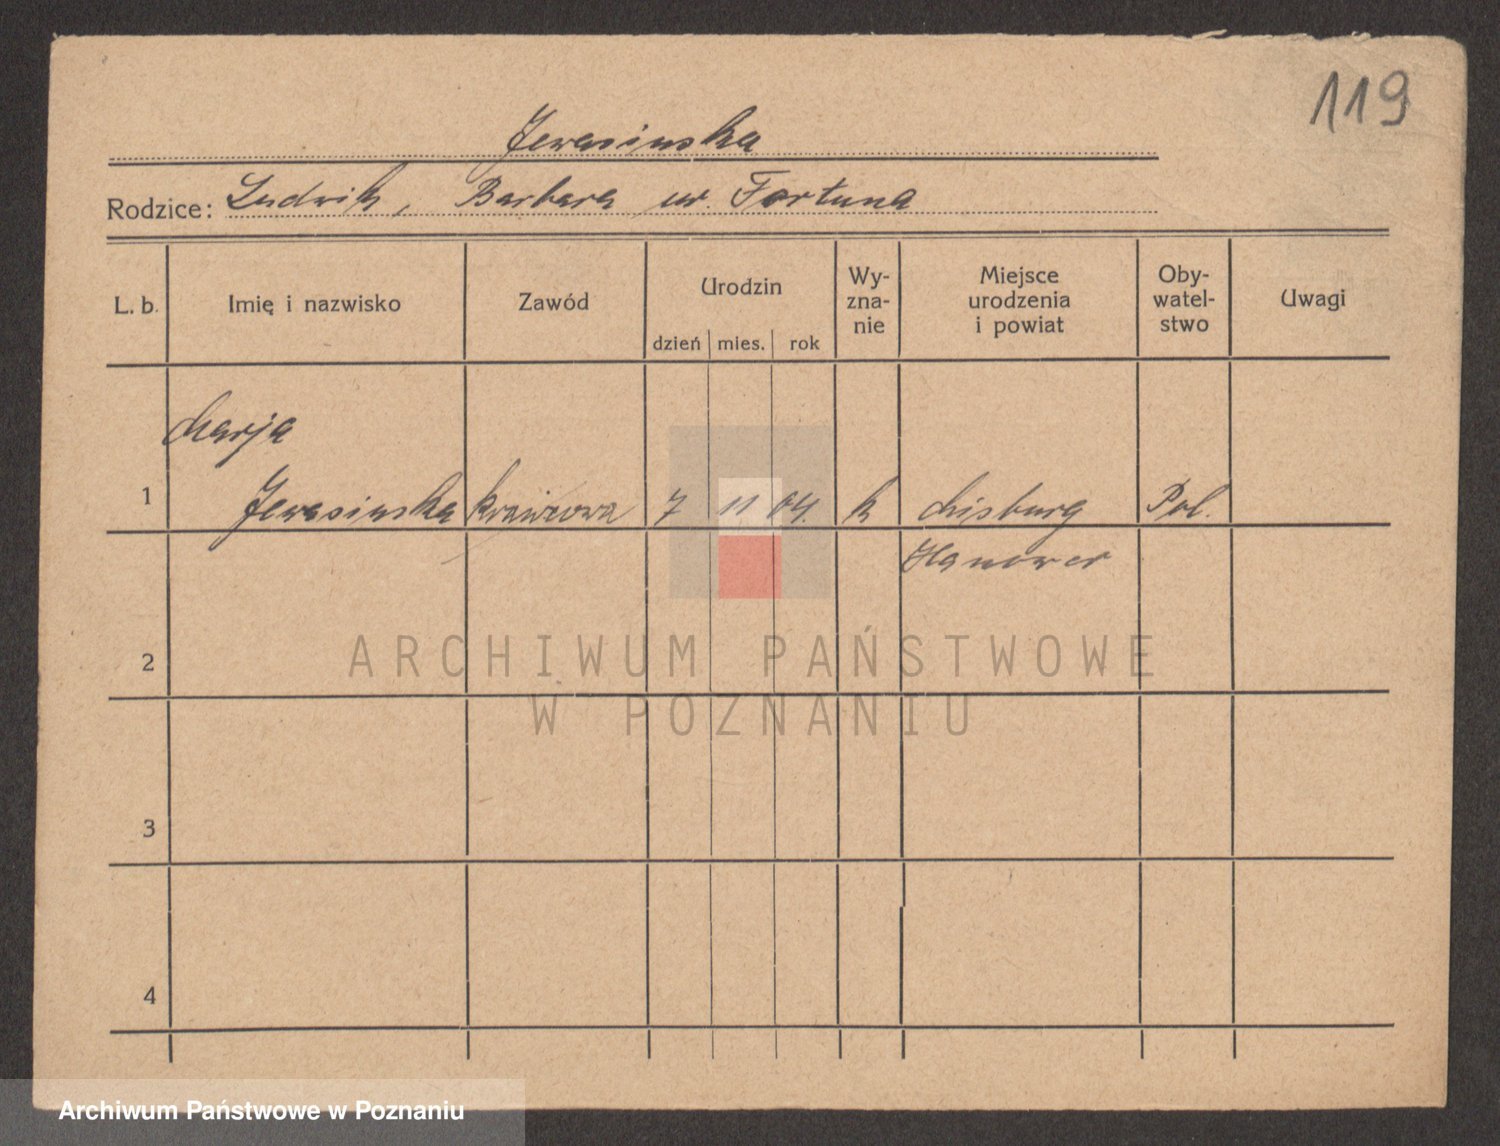 119
Jerasinska
Rodzice: Ludwik, Barbara ur. Fortuna
L. b. Imię i nazwisko Zawód Urodzin dzień mies. rok Wy-zna-nie Miejsce urodzenia i powiat Oby-watel-stwo Uwagi
Marja
1 Jerasinska krawcowa 7 11 04. k Misburg Pol.
Hanower
2
ARCHIWUM PAŃSTWOWE
W POZNANIU
3
4
Archiwum Państwowe w Poznaniu